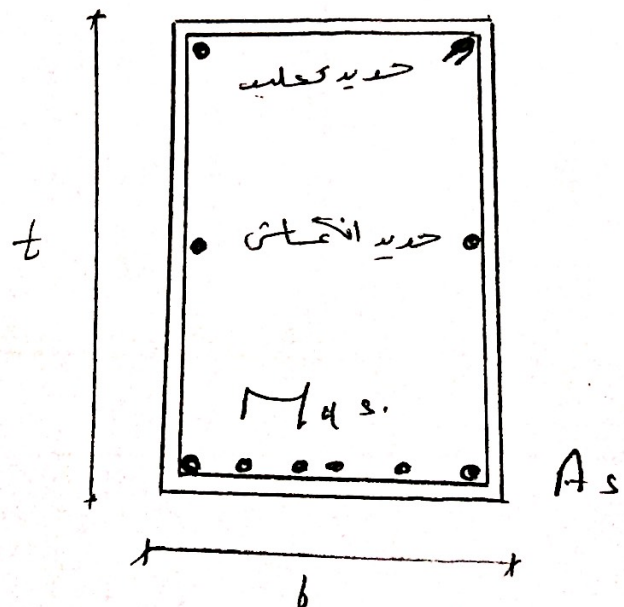 حديد تعليق
t
حديد انكماش
Mas.
As
b